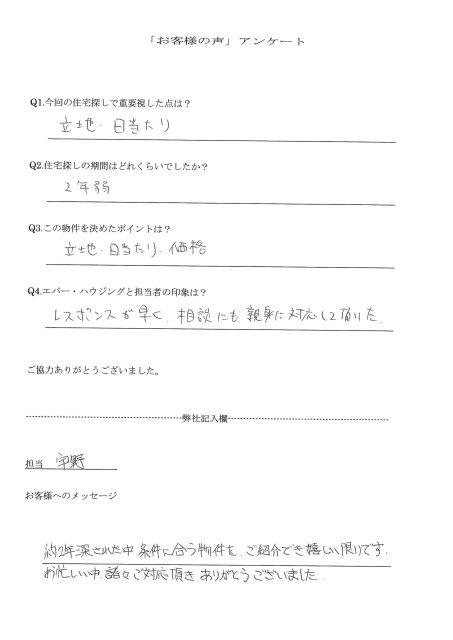 「お客様の声」アンケート
Q1.今回の住宅探しで重要視した点は？
立地・日当たり
Q2.住宅探しの期間はどれくらいでしたか？
2年弱
Q3.この物件を決めたポイントは？
立地・日当たり・価格
Q4.エバー・ハウジングと担当者の印象は？
レスポンスが早く、相談にも親身に対応して頂いた。
ご協力ありがとうございました。
弊社記入欄
担当 宇野
お客様へのメッセージ
約2年探された中 条件に合う物件を、ご紹介でき嬉しい限りです。
お忙しい中、諸々ご対応頂き ありがとうございました。